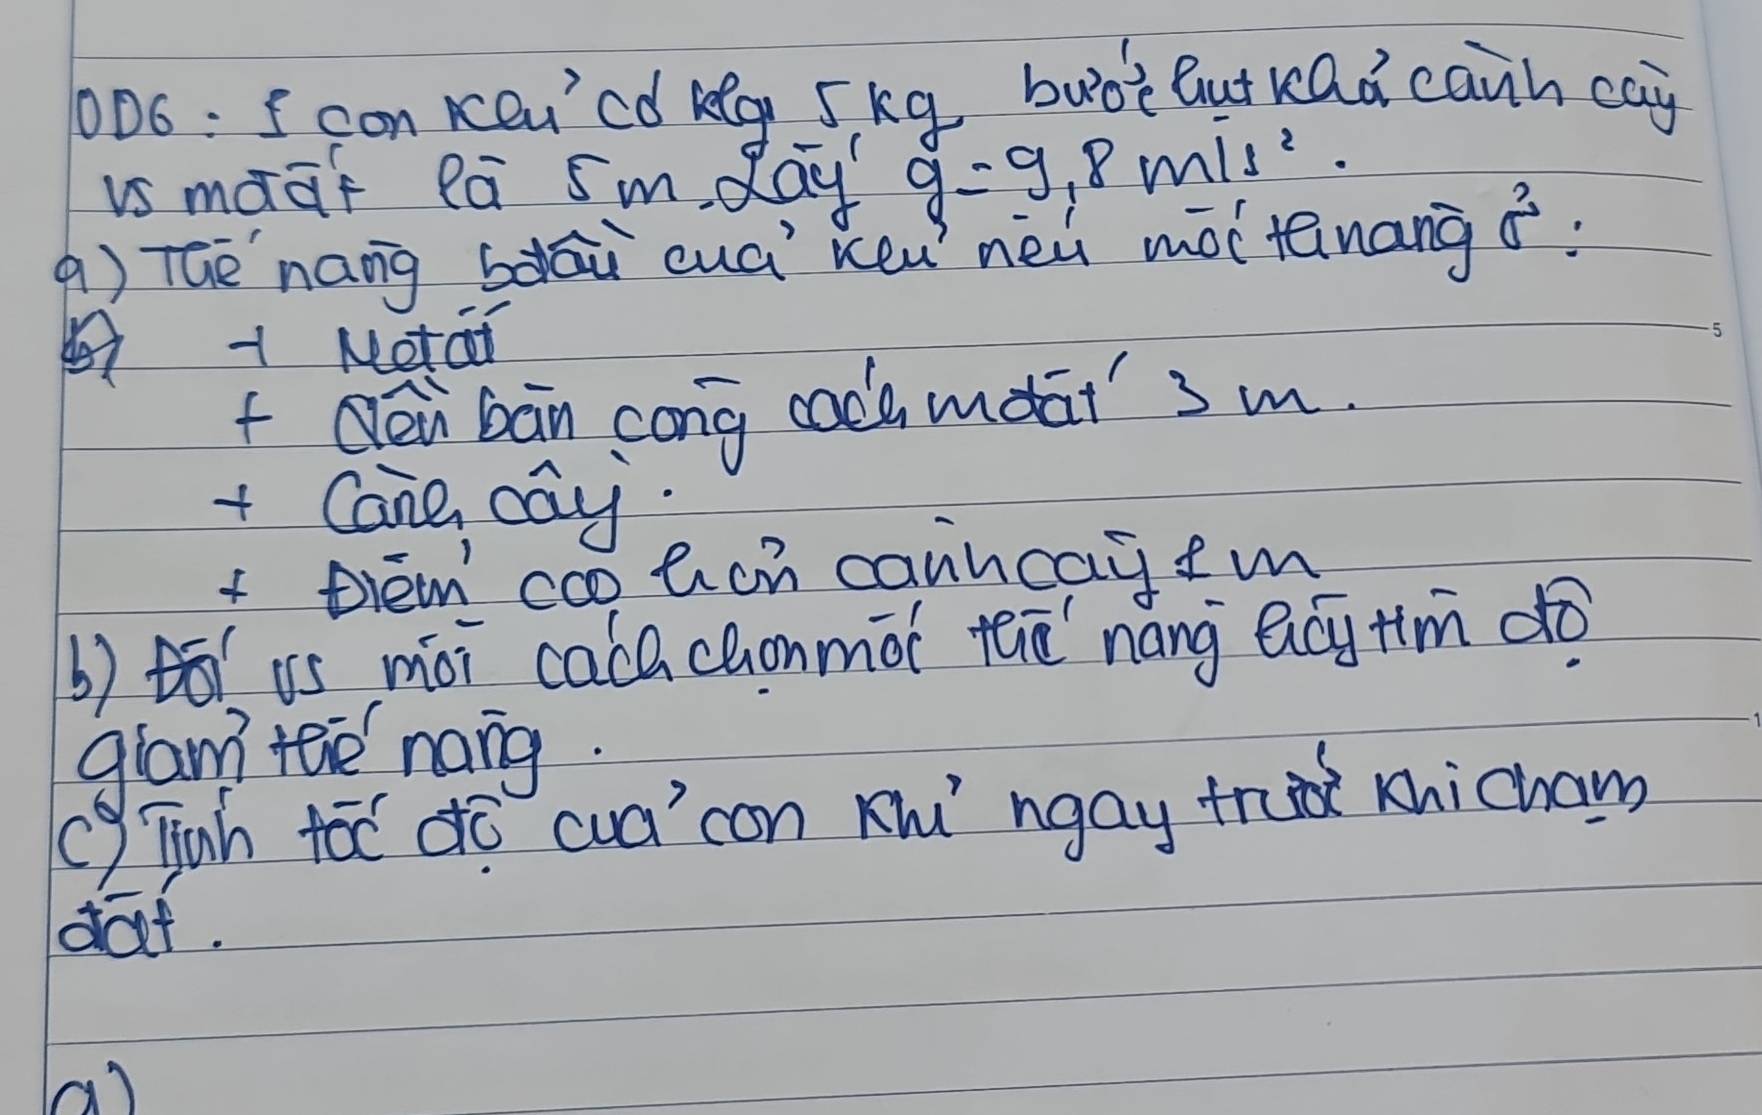 DD6: 1 con khỉ có klg 5 kg bước hụt khỏi cành cây
vs mđất là 5m. Lấy g = 9,8 m/s².
a) Thế năng bđầu của khỉ nếu mốc tnăng ở:
+ Mặt đất
+ Nền ban công cách mđất 3 m.
+ Cành cây.
+ Điểm cao hơn cành cây 1 m
b) Đối vs mỗi cách chọn mốc thế năng hãy tìm độ
giảm thế năng.
c) Tính tốc độ của con khỉ ngay trước khi chạm
đất.
a)